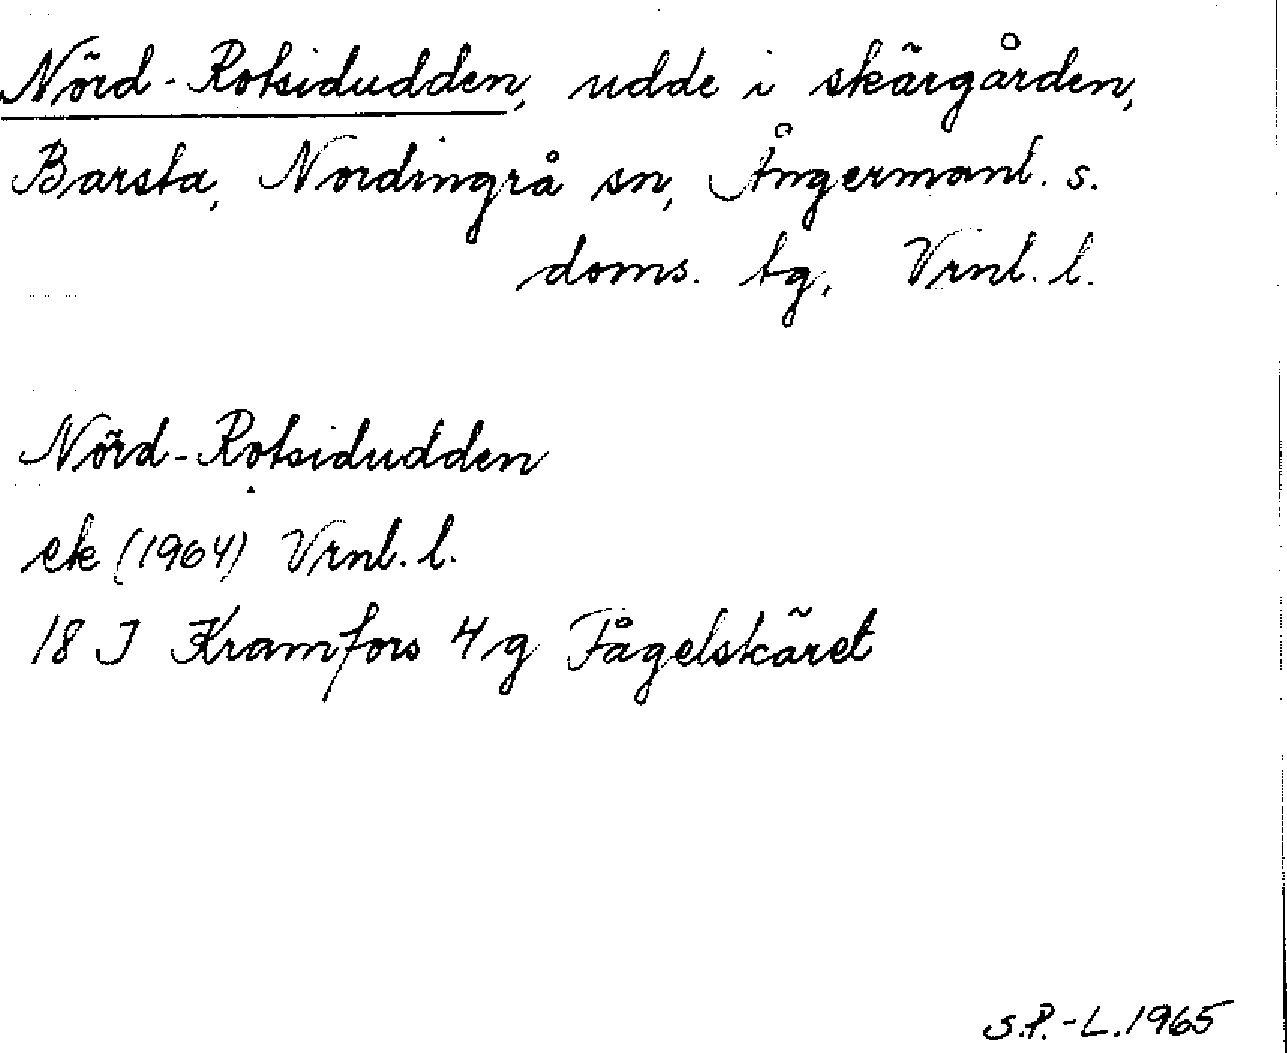 Nörd-Rotsidudden, udde i skärgården,
Barsta, Nordingrå sn, Ångermanl. s.
doms. tg, Vrnl. l.
Nörd-Rotsidudden
ek (1964) Vrnl. l.
18 J Kramfors 4 g Fågelskäret
S.P.-L. 1965